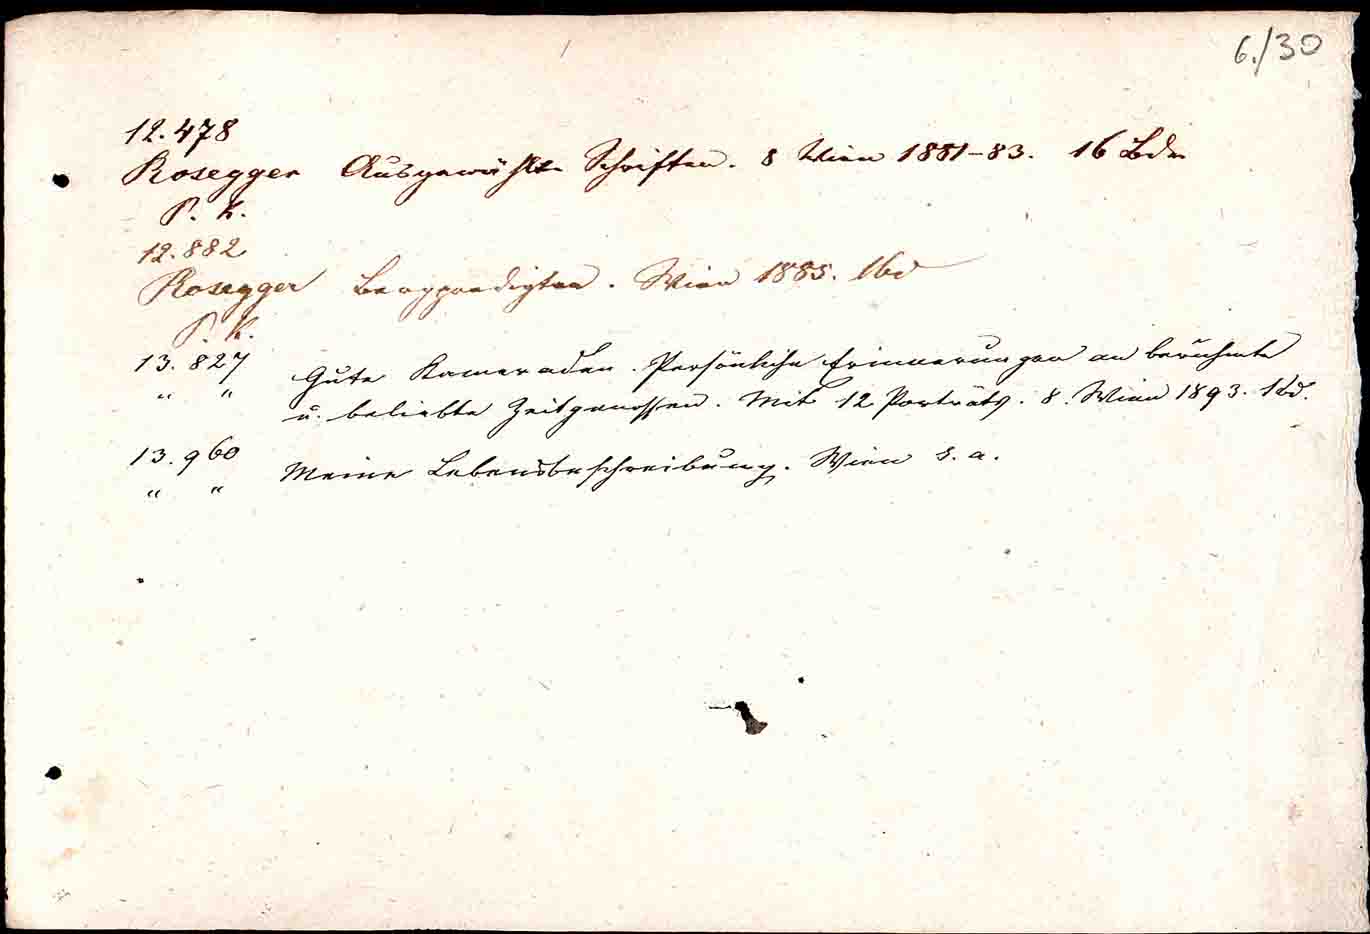 6./30
12.478
Rosegger Ausgewählte Schriften. 8 Wien 1881-83. 16 Bde
P. K.
12.882
Rosegger Bergpredigten. Wien 1885. 1bd
P. K.
13.827 Gute Kameraden. Persönliche Erinnerungen an berühmte
" " u. beliebte Zeitgenossen. Mit 12 Porträts. 8. Wien 1893. 1bd.
13.960 Meine Lebensbeschreibung. Wien s. a.
" "